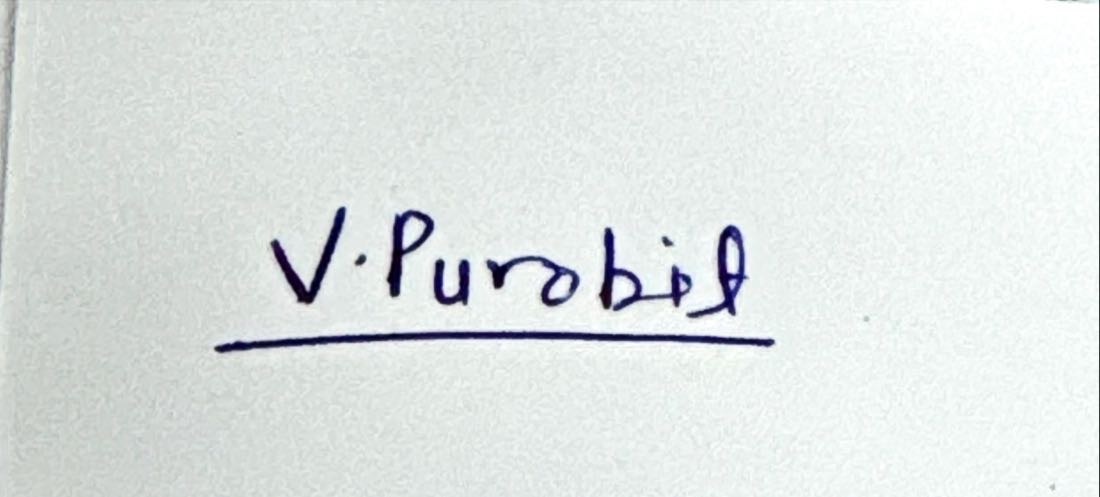 V. Purobit